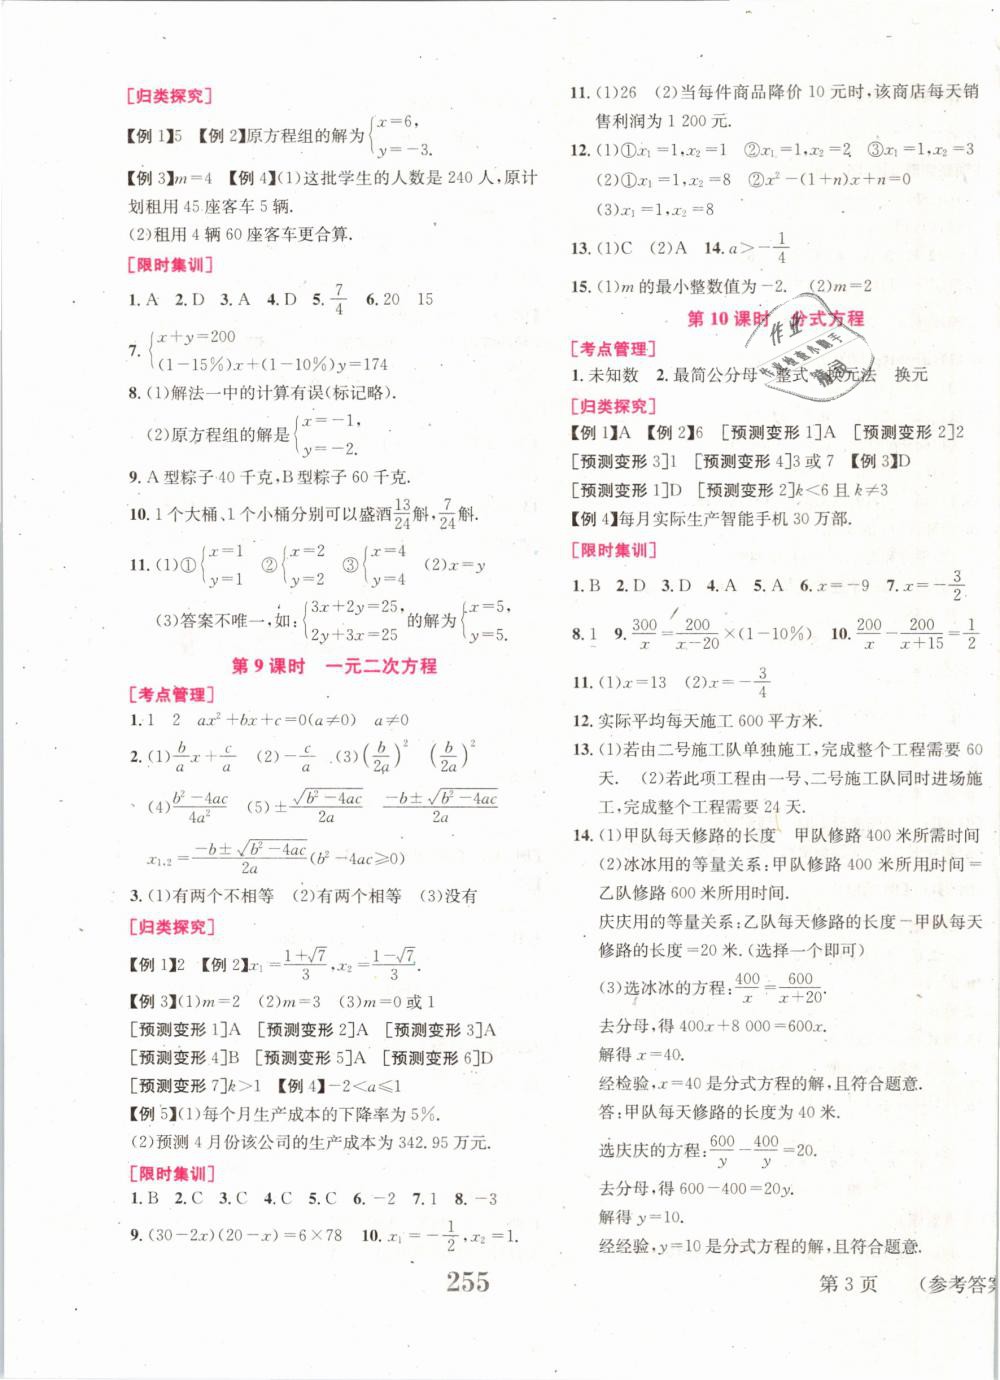 [归类探究]
【例 1】5 【例 2】原方程组的解为{x=6, y=-3.
【例 3】m=4 【例 4】(1)这批学生的人数是 240 人,原计
划租用 45 座客车 5 辆.
(2)租用 4 辆 60 座客车更合算.
[限时集训]
1. A 2. D 3. A 4. D 5. 7/4 6. 20 15
7. {x+y=200 (1-15%)x+(1-10%)y=174
8. (1)解法一中的计算有误(标记略).
(2)原方程组的解是{x=-1, y=-2.
9. A 型粽子 40 千克,B 型粽子 60 千克.
10. 1 个大桶、1 个小桶分别可以盛酒 13/24 斛, 7/24 斛.
11. (1)①{x=1 y=1 ②{x=2 y=2 ③{x=4 y=4 (2)x=y
(3)答案不唯一,如:{3x+2y=25, 2y+3x=25 的解为{x=5, y=5.
第 9 课时 一元二次方程
[考点管理]
1. 1 2 ax²+bx+c=0(a≠0) a≠0
2. (1) b/a x + c/a (2) -c/a (3) (b/2a)² (b/2a)²
(4) (b²-4ac)/4a² (5) ±√(b²-4ac)/2a (-b±√(b²-4ac))/2a
x₁,₂ = (-b±√(b²-4ac))/2a (b²-4ac≥0)
3. (1)有两个不相等 (2)有两个相等 (3)没有
[归类探究]
【例 1】2 【例 2】x₁=(1+√7)/3, x₂=(1-√7)/3.
【例 3】(1)m=2 (2)m=3 (3)m=0 或 1
[预测变形 1]A [预测变形 2]A [预测变形 3]A
[预测变形 4]B [预测变形 5]A [预测变形 6]D
[预测变形 7]k>1 【例 4】-2<a≤1
【例 5】(1)每个月生产成本的下降率为 5%.
(2)预测 4 月份该公司的生产成本为 342.95 万元.
[限时集训]
1. B 2. C 3. C 4. C 5. C 6. -2 7. 1 8. -3
9. (30-2x)(20-x)=6×78 10. x₁=-1/2, x₂=1.
11. (1)26 (2)当每件商品降价 10 元时,该商店每天销
售利润为 1 200 元.
12. (1)①x₁=1,x₂=1 ②x₁=1,x₂=2 ③x₁=1,x₂=3
(2)①x₁=1,x₂=8 ②x²-(1+n)x+n=0
(3)x₁=1,x₂=8
13. (1)C (2)A 14. a>-1/4
15. (1)m 的最小整数值为-2. (2)m=2
第 10 课时 分式方程
[考点管理]
1. 未知数 2. 最简公分母 整式 换元法 换元
[归类探究]
【例 1】A 【例 2】6 [预测变形 1]A [预测变形 2]2
[预测变形 3]1 [预测变形 4]3 或 7 【例 3】D
[预测变形 1]D [预测变形 2]k<6 且 k≠3
【例 4】每月实际生产智能手机 30 万部.
[限时集训]
1. B 2. D 3. D 4. A 5. A 6. x=-9 7. x=-3/2
8. 1 9. 300/x = 200/(x-20) ×(1-10%) 10. 200/x - 200/(x+15) = 1/2
11. (1)x=13 (2)x=-3/4
12. 实际平均每天施工 600 平方米.
13. (1)若由二号施工队单独施工,完成整个工程需要 60
天. (2)若此项工程由一号、二号施工队同时进场施
工,完成整个工程需要 24 天.
14. (1)甲队每天修路的长度 甲队修路 400 米所需时间
(2)冰冰用的等量关系:甲队修路 400 米所用时间=
乙队修路 600 米所用时间.
庆庆用的等量关系:乙队每天修路的长度-甲队每天
修路的长度=20 米.(选择一个即可)
(3)选冰冰的方程: 400/x = 600/(x+20).
去分母,得 400x+8 000=600x.
解得 x=40.
经检验,x=40 是分式方程的解,且符合题意.
答:甲队每天修路的长度为 40 米.
选庆庆的方程: 600/y - 400/y = 20.
去分母,得 600-400=20y.
解得 y=10.
经经验,y=10 是分式方程的解,且符合题意.
255
第 3 页 (参考答案
作业
作业检查小助手
精灵